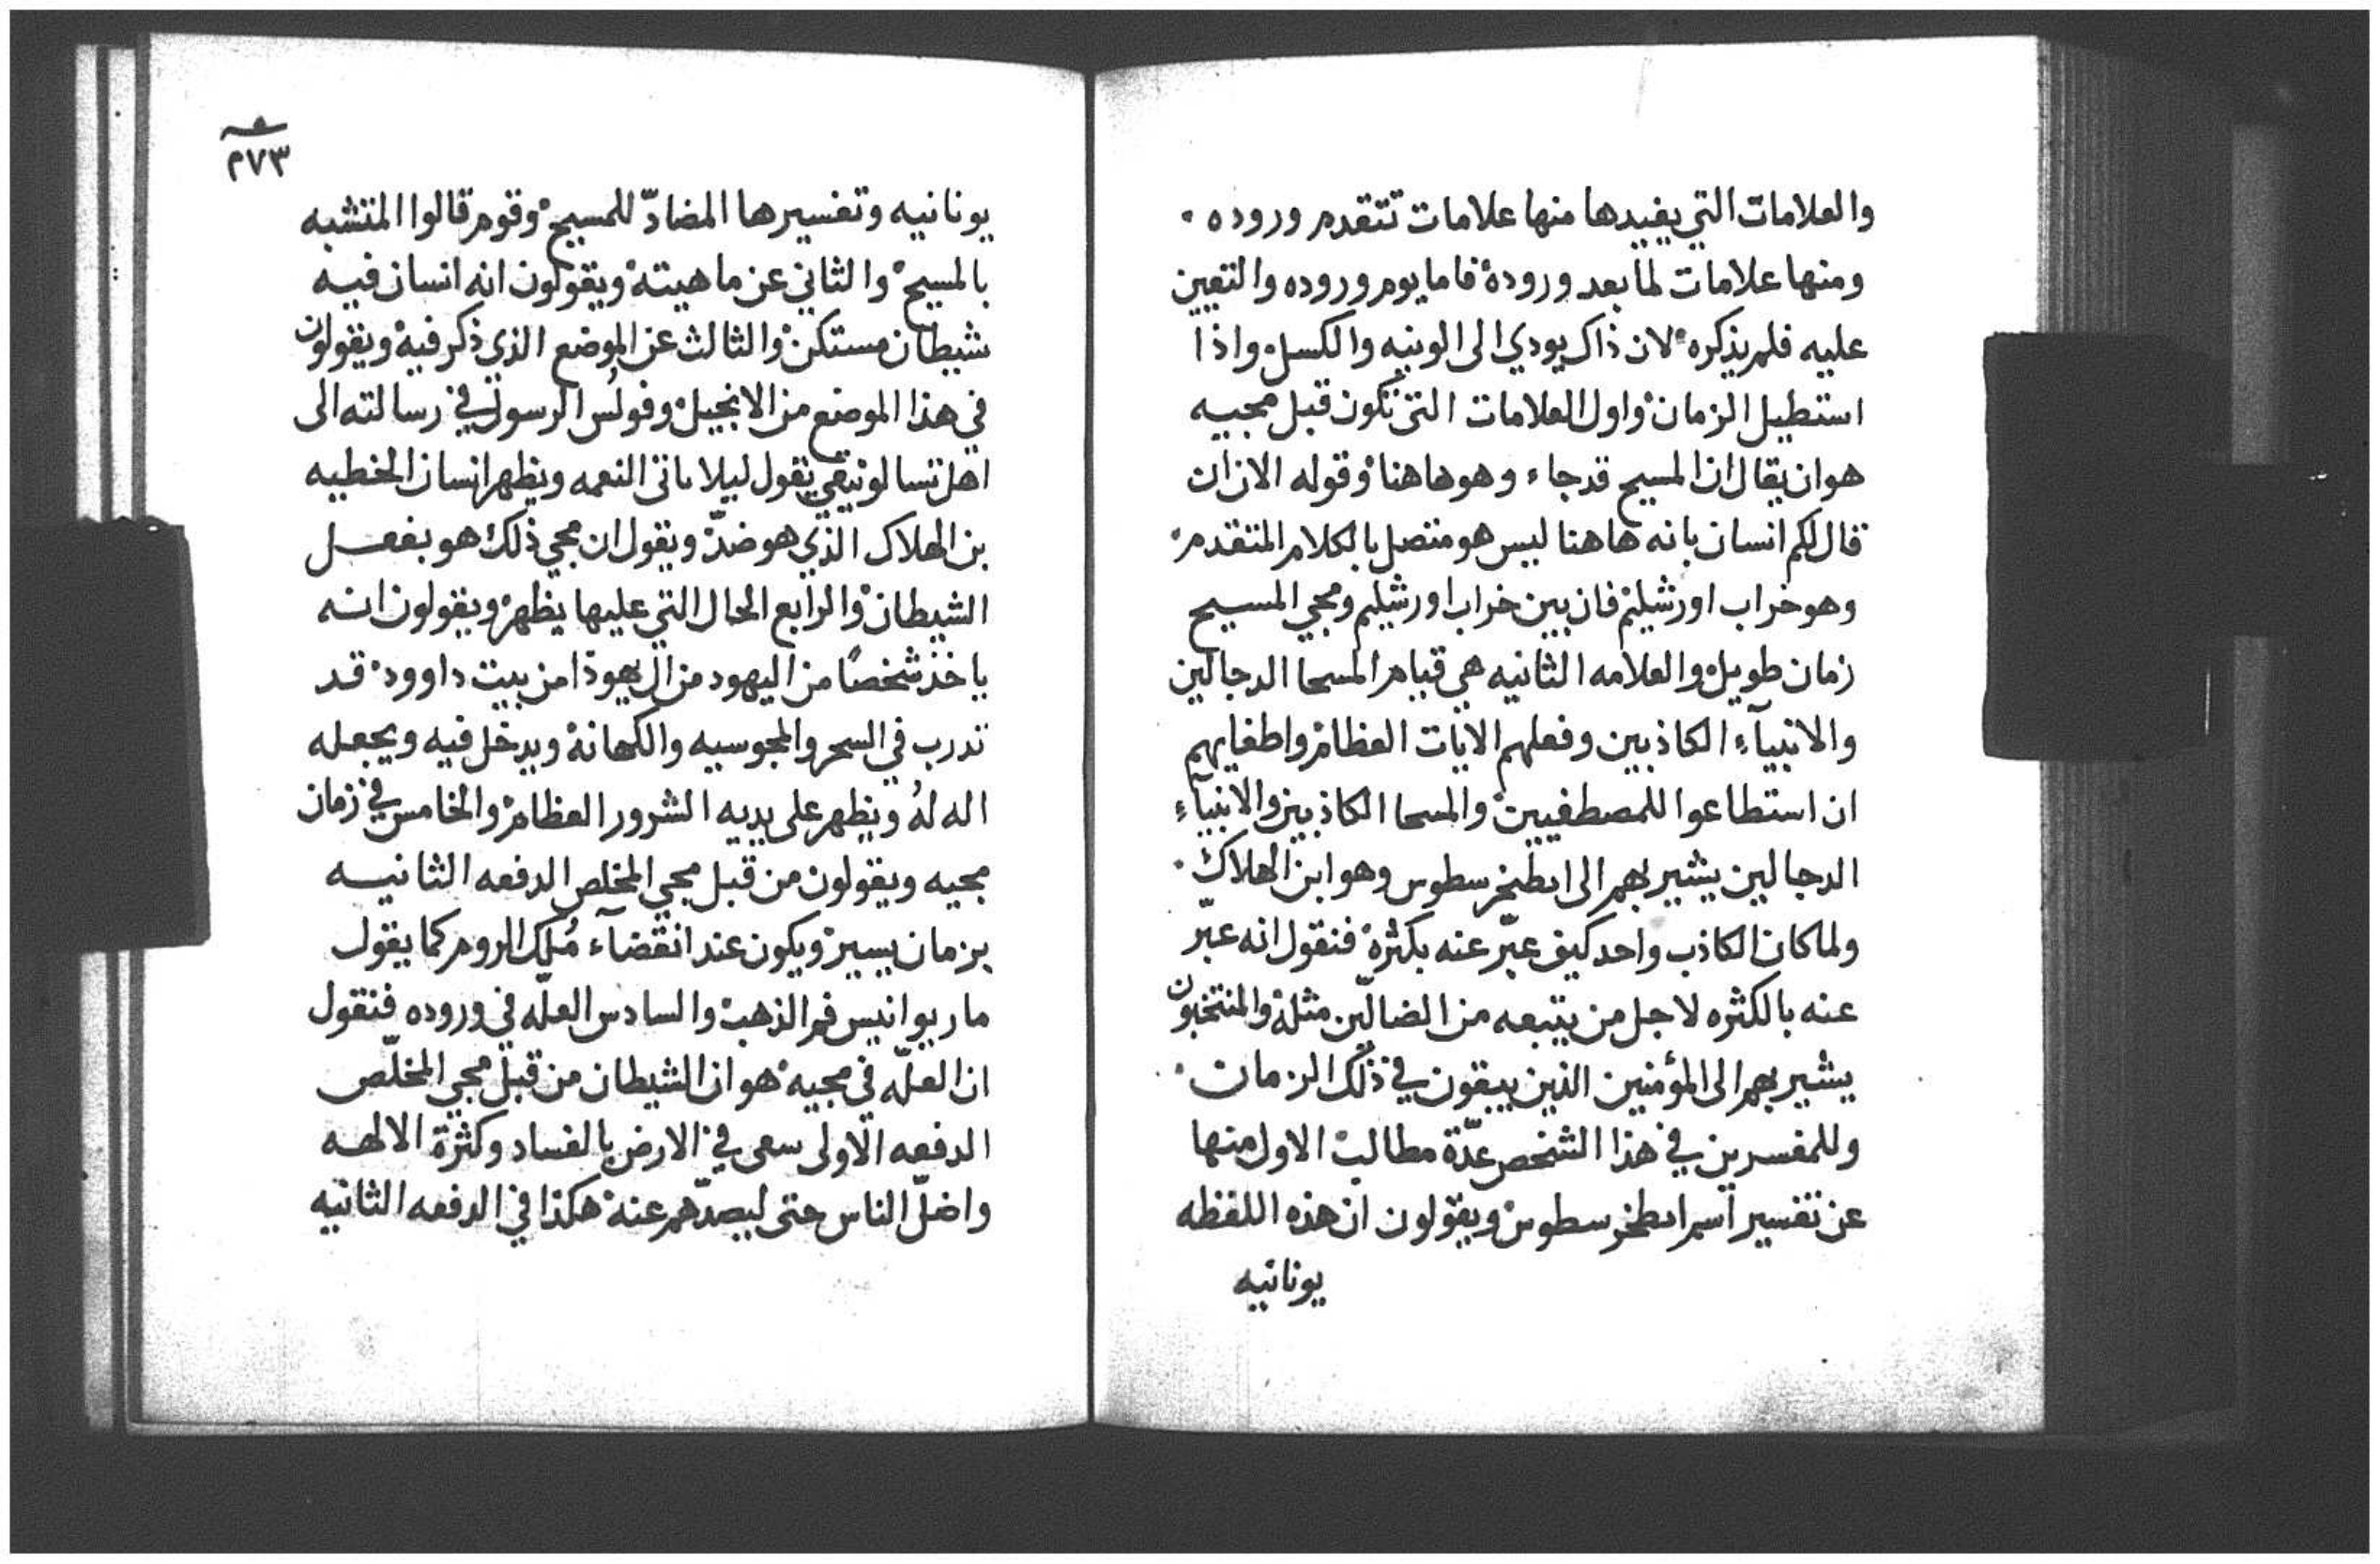 والعلامات التي يفيدها منها علامات تتقدم وروده ·
ومنها علامات لما بعد وروده فاما يوم وروده والتعيين
عليه فلم يذكره لان ذاك يودي الى الونيه والكسل واذا
استطيل الزمان واول العلامات التي تكون قبل مجيه
هو ان يقال ان المسيح قد جاء وهوهاهنا وقوله الان ان
قال لكم انسان بانه هاهنا ليس هو متصل بالكلام المتقدم
وهو خراب اورشليم فان بين خراب اورشليم ومجي المسيح
زمان طويل والعلامه الثانيه هي قيام المسحا الدجالين
والانبيآء الكاذبين وفعلهم الايات العظام واطغايهم
ان استطاعوا للمصطفيين والمسحا الكاذبين والانبيآء
الدجالين يشير بهم الى انطخرسطوس وهو ابن الهلاك ·
ولما كان الكاذب واحد كيف عبّر عنه بكثره فنقول انه عبّر
عنه بالكثره لاجل من يتبعه من الضالّين مثله والمنتخبون
يشير بهم الى المؤمنين الذين يبقون في ذلك الزمان ·
وللمفسرين في هذا الشخص عدّة مطالب الاول منها
عن تفسير اسم انطخرسطوس ويقولون ان هذه اللفظه
يونانيه
٢٧٣
يونانيه وتفسيرها المضادّ للمسيح وقوم قالوا المتشبه
بالمسيح والثاني عن ماهيته ويقولون انه انسان فيه
شيطان مستكن والثالث عن الموضع الذي ذكر فيه ويقولون
في هذا الموضع من الانجيل وفولُس الرسول في رسالته الى
اهل تسالونيقي يقول ليلا تاتى النعمه ويظهر انسان الخطيه
بن الهلاك الذي هو ضدّ ويقول ان مجي ذلك هو بفعل
الشيطان والرابع الحال التي عليها يظهر ويقولون انه
ياخذ شخصًا من اليهود من ال يهوذا من بيت داوود قد
تدرب في السحر والمجوسيه والكهانه ويدخل فيه ويجعله
اله لهُ ويظهر على يديه الشرور العظام والخامس في زمان
مجيه ويقولون من قبل مجي المخلص الدفعه الثانيه
بزمان يسير ويكون عند انقضآء مُلك الروم كما يقول
مار يوانيس فم الذهب والسادس العلّه في وروده فنقول
ان العلّه في مجيه هو ان الشيطان من قبل مجي المخلّص
الدفعه الاولى سعى في الارض بالفساد وكثرة الالهه
واضلّ الناس حتى ليصدّهم عنه هكذا في الدفعه الثانيه